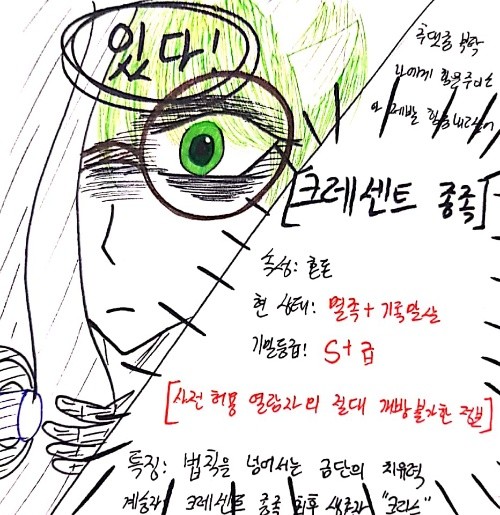 있다!
추댓중 부탁
나에게 힘을 주는
[크레센트 종족]
속성: 혼돈
현 상태: 멸족 + 기록말살
기밀등급: S+급
[사전 허용 열람자 외 절대 개방불가한 정보]
특징: 법칙을 넘어서는 금단의 치유력
계승자: 크레센트 종족 최후 생존자 "크리스"